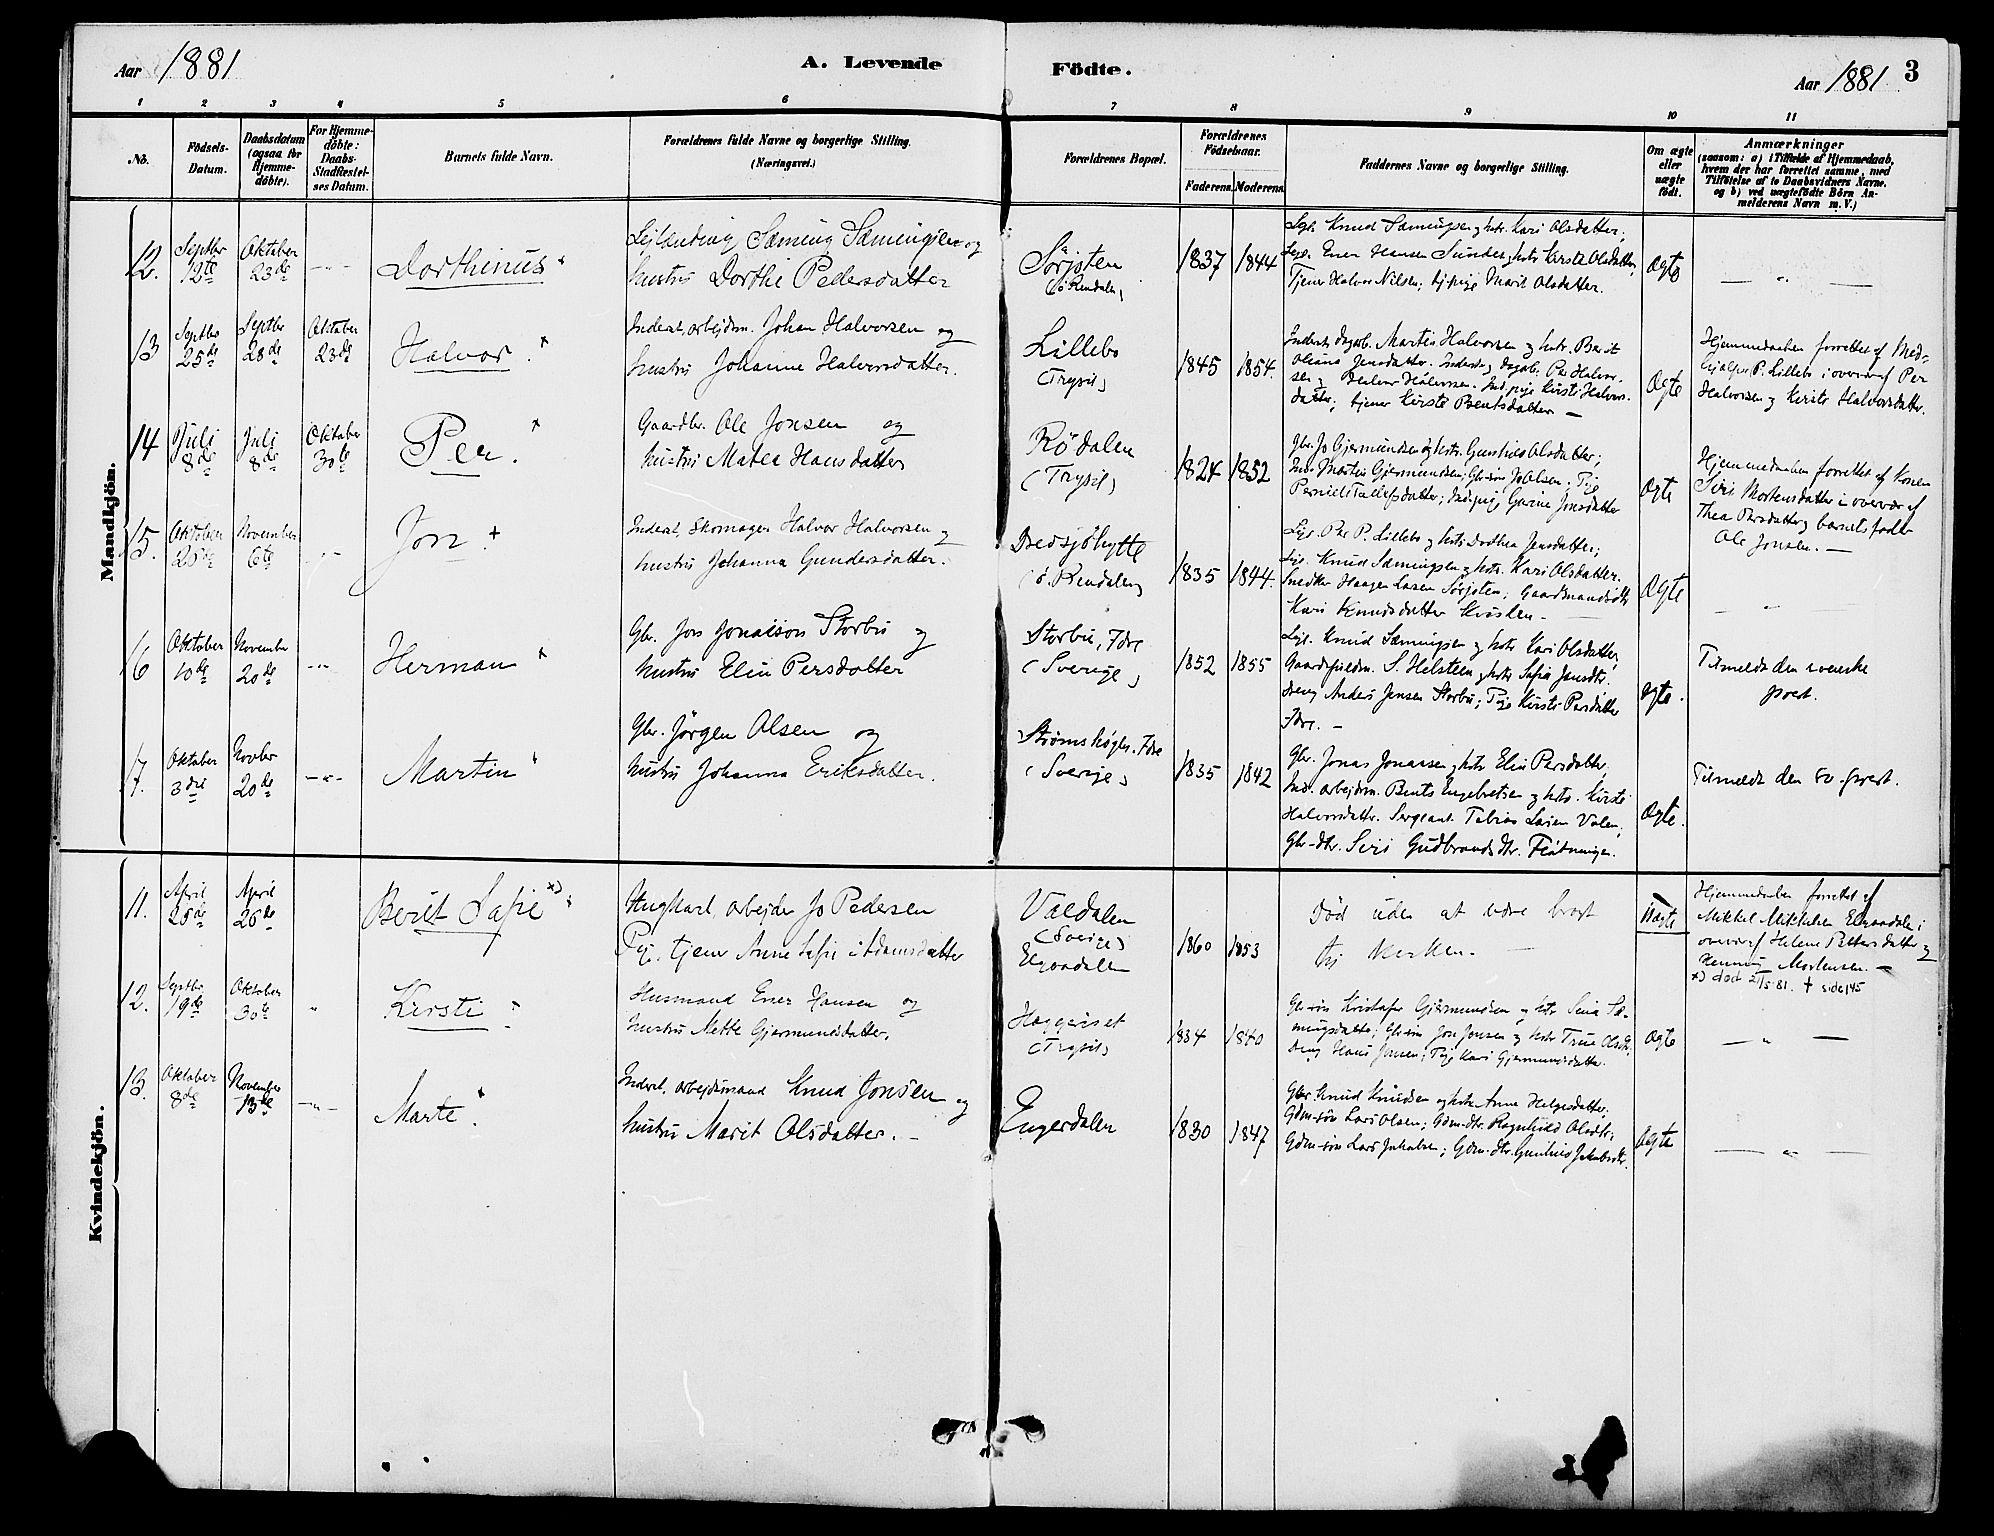 Aar 1881
A. Levende Födte.
Aar 1881
3
1 2 3 4 5 6 7 8 9 10 11
No.
Födsels-Datum.
Daabsdatum (ogsaa for Hjemme-döbte).
For Hjemme-döbte: Daabs-Stadfæstel-ses Datum.
Barnets fulde Navn.
Forældrenes fulde Navne og borgerlige Stilling. (Næringsvei.)
Forældrenes Bopæl.
Forældrenes Födselsaar.
Faderens. Moderens.
Faddernes Navne og borgerlige Stilling.
Om ægte eller uægte födt.
Anmærkninger
(saasom: a) i Tilfælde af Hjemmedaab,
hvem der har forrettet samme, med
Tilföielse af to Daabsvidners Navne,
og b) ved uægtefödte Börn An-
melderens Navn m. V.)
Mandkjön.
12. Septbr 12te Oktober 23de Dorthinus
Sæming Sæmingsen og
hustru Dorthe Pedersdatter
Sørjsten
1837 1844
Knud Sæmingsen og hstr. Kari Olsdatter;
Ener Hansen Sundet og hstr Kirsti Olsdatter,
Tjener Halvor Nilsen; Marit Olsdatter.
Ægte
13 Septbr 25de Septbr 28de Oktober 23de Halvor.
Inderst, arbejdsm. Johan Halvorsen og
hustru Johanne Halvorsdatter.
Lillebo
(Trysil)
1845 1854.
Inderst, dagarb. Martin Halvorsen og hstr. Berit
Oliana Jensdatter. Inderst og dagarb. Per Halvor-
sen, Halvorsen. Ind. pige Kirsti Halvors-
datter; tjener Kirsti Bentsdatter —
Ægte
Hjemmedaaben forrettet af Med-
hjælper P. Lillebo i overvær af Per
Halvorsen og Kirsti Halvorsdatter.
14 Juli 8de Juli 8de Oktober 30te Per.
Gaardbr. Ole Jonsen og
hustru Matea Hansdatter
Rödalen
(Trysil)
1824 1852
Gbr. Jo Gjermundsen og hstr. Gunhild Olsdatter;
Ind. Martin Gjermundsen; Gbr-søn Jo Olsen; Pige
Pernille Tollefsdatter; Ind. pige Gurine Jonsdatter
Ægte
Hjemmedaaben forrettet af Konen
Siri Mortensdatter i overvær af
Thea Persdatter og barnets fader
Ole Jonsen. —
15. Oktober 25de November 6te Jon.
Inderst, Skomager Halvor Halvorsen og
hustru Johanna Gundersdatter.
Bredsjöhytte
(ö. Rendalen)
1835 1844.
Per P. Lillebo og hstr. Dorthea Jensdatter;
Knud Sæmingsen og hstr. Kari Olsdatter.
Snedker Haagen Larsen Sørjsten; Gaardmandsdtr
Kari Knudsdatter Kvisken —
Ægte
16 Oktober 10de November 20de Herman
Gbr. Jon Jonasson Storbu og
hustru Elin Persdatter
Storbu, Idre
(Sverige)
1852 1855
Knud Sæmingsen og hstr Kari Olsdatter,
S. Helsteen og hstr Sofia Jensdtr.
Dreng Anders Jensen Storbu; Pige Kirsti Persdatter
Idre. —
Ægte.
Tilmeldt den svenske
prest.
17. Oktober 3die Novbr 20de Martin
Gbr. Jörgen Olsen og
hustru Johanna Eriksdatter.
Idre
(Sverige)
1835 1842
Gbr. Jonas Jonassen og hstr Elin Persdatter,
Ind. arbejdsm. Bent Engebretsen og hstr. Kirsti
Halvorsdatter. Sergeant Tobias Larsen Valen;
Gbr-dtr. Siri Gudbrandsdtr. Flötningen.
Ægte.
Tilmeldt den sv. prest.
Kvindekjön.
11. April 25de April 26de Berit Sofie x)
Ungkarl, arbejder Jo Pedersen
Pige, tjener Anne Sofie Adamsdatter
(Sverige)
Elgaadalen
1860 1853
Död uden at være bragt
til kirken. —
Uægte
Hjemmedaaben forrettet af
Mikkel Mikkelsen Elgaadalen i
overvær af Helene Pettersdatter og
Henning Mortensen. —
x) död 2/5 81. † side 145
12. Septbr. 19de Oktober 30te Kirsti
Husmand Ener Hansen og
hustru Mette Gjermundsdatter.
Haggeriset
(Trysil)
1834 1840
Gbr-søn Kristofer Gjermundsen og hstr Sæ-
mingsdatter; Gbr-søn Jon Jonsen og hstr Trine Olsdtr.
Dreng Hans Jonsen; Pige Kari Gjermundsdatter.
Ægte
13. Oktober 8de November 13de Marte.
Inderst, arbejdsmand Knud Jonsen og
hustru Marit Olsdatter. —
Engerdalen
1830 1847
Gbr. Knud Knudsen og hstr Anne Helgesdatter;
Gdm-søn Lars Olsen; Gdm-dtr. Ragnhild Olsdtr;
Gdm-søn Lars Jakobsen; Gdm.-dtr. Gunhild Jakobsdtr.
Ægte